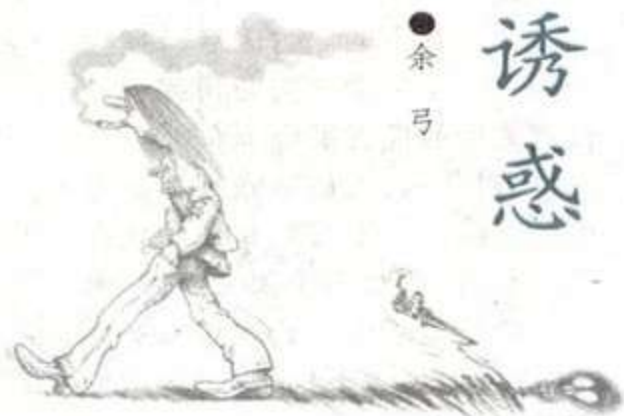 诱惑
●余弓